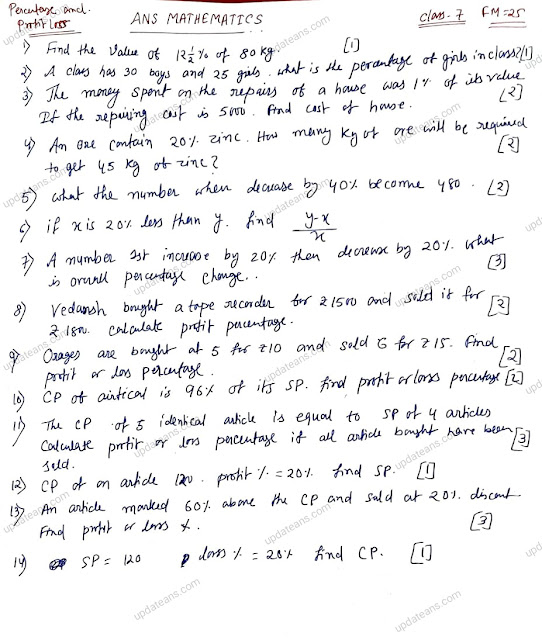 Percentage and.
Profit Loss
ANS MATHEMATICS
class. 7 FM=25
1) Find the value of 12½% of 80 kg. [1]
2) A class has 30 boys and 25 girls. what is the percentage of girls in class? [1]
3) The money spent on the repairs of a house was 1% of its value
If the repairing cost is 5000. find cost of house. [2]
4) An ore contain 20% zinc. How many kg of ore will be required
to get 45 kg of zinc? [2]
5) what the number when decrease by 40% become 480. [2]
6) if x is 20% less than y. find y-x/x
7) A number 1st increase by 20% then decrease by 20%. what
is overall percentage change.. [3]
8) Vedansh bought a tape recorder for ₹1500 and sold it for
₹ 1800. calculate profit percentage. [2]
9) Orages are bought at 5 for ₹10 and sold 6 for ₹15. find
profit or loss percentage. [2]
10) CP of airtical is 96% of its SP. find profit or loss percentage [2]
11) The CP of 5 identical article is equal to SP of 4 articles
Calculate profit or loss percentage if all article bought have been
sold. [3]
12) CP of an article 120. profit % = 20% find SP. [1]
13) An article marked 60% above the CP and sold at 20% discount.
Find profit or loss %. [3]
14) SP = 120 loss % = 20% find CP. [1]
updateans.com